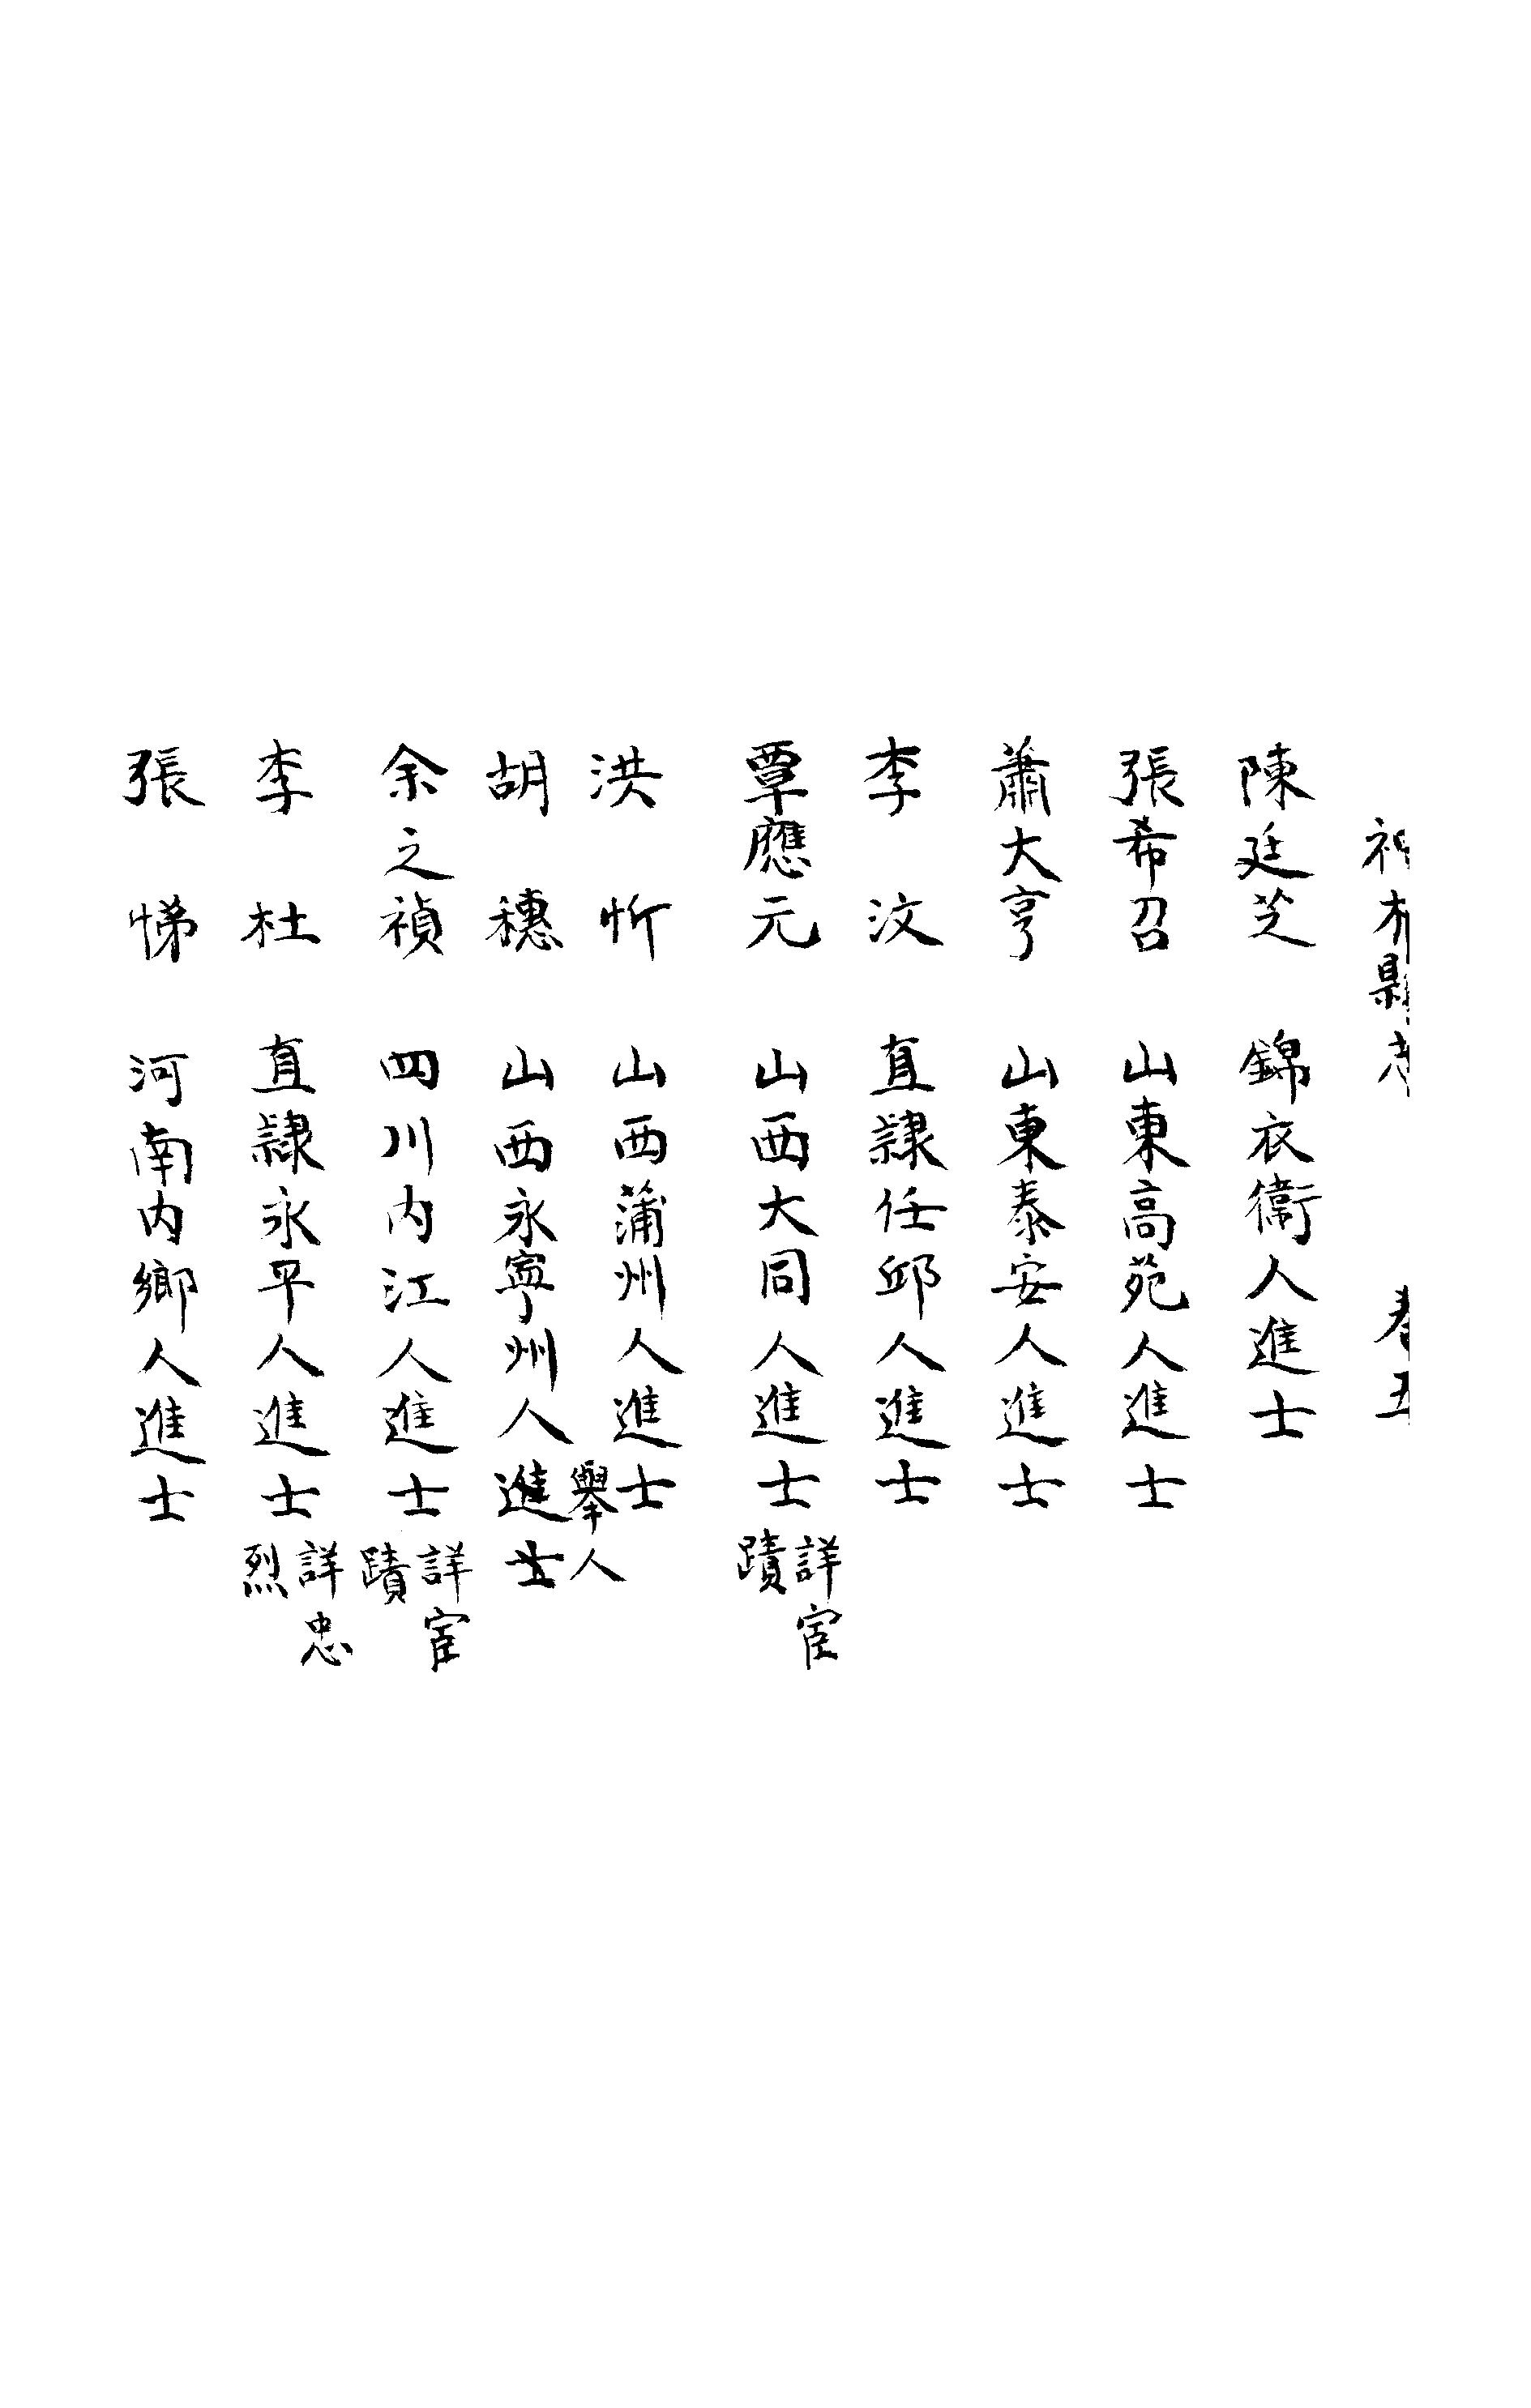 神木縣志 卷五
陳廷芝 錦衣衛人進士
張希召 山東高苑人進士
蕭大亨 山東泰安人進士
李 汶 直隸任邱人進士
覃應元 山西大同人進士 詳宦蹟
洪 忻 山西蒲州人進士
胡 穗 山西永寧州人進士 舉人
余之禎 四川内江人進士 詳宦蹟
李 杜 直隸永平人進士 詳忠烈
張 悌 河南内鄉人進士